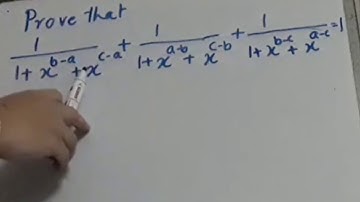 Prove that
1/(1+x^(b-a)+x^(c-a)) + 1/(1+x^(a-b)+x^(c-b)) + 1/(1+x^(b-c)+x^(a-c)) = 1